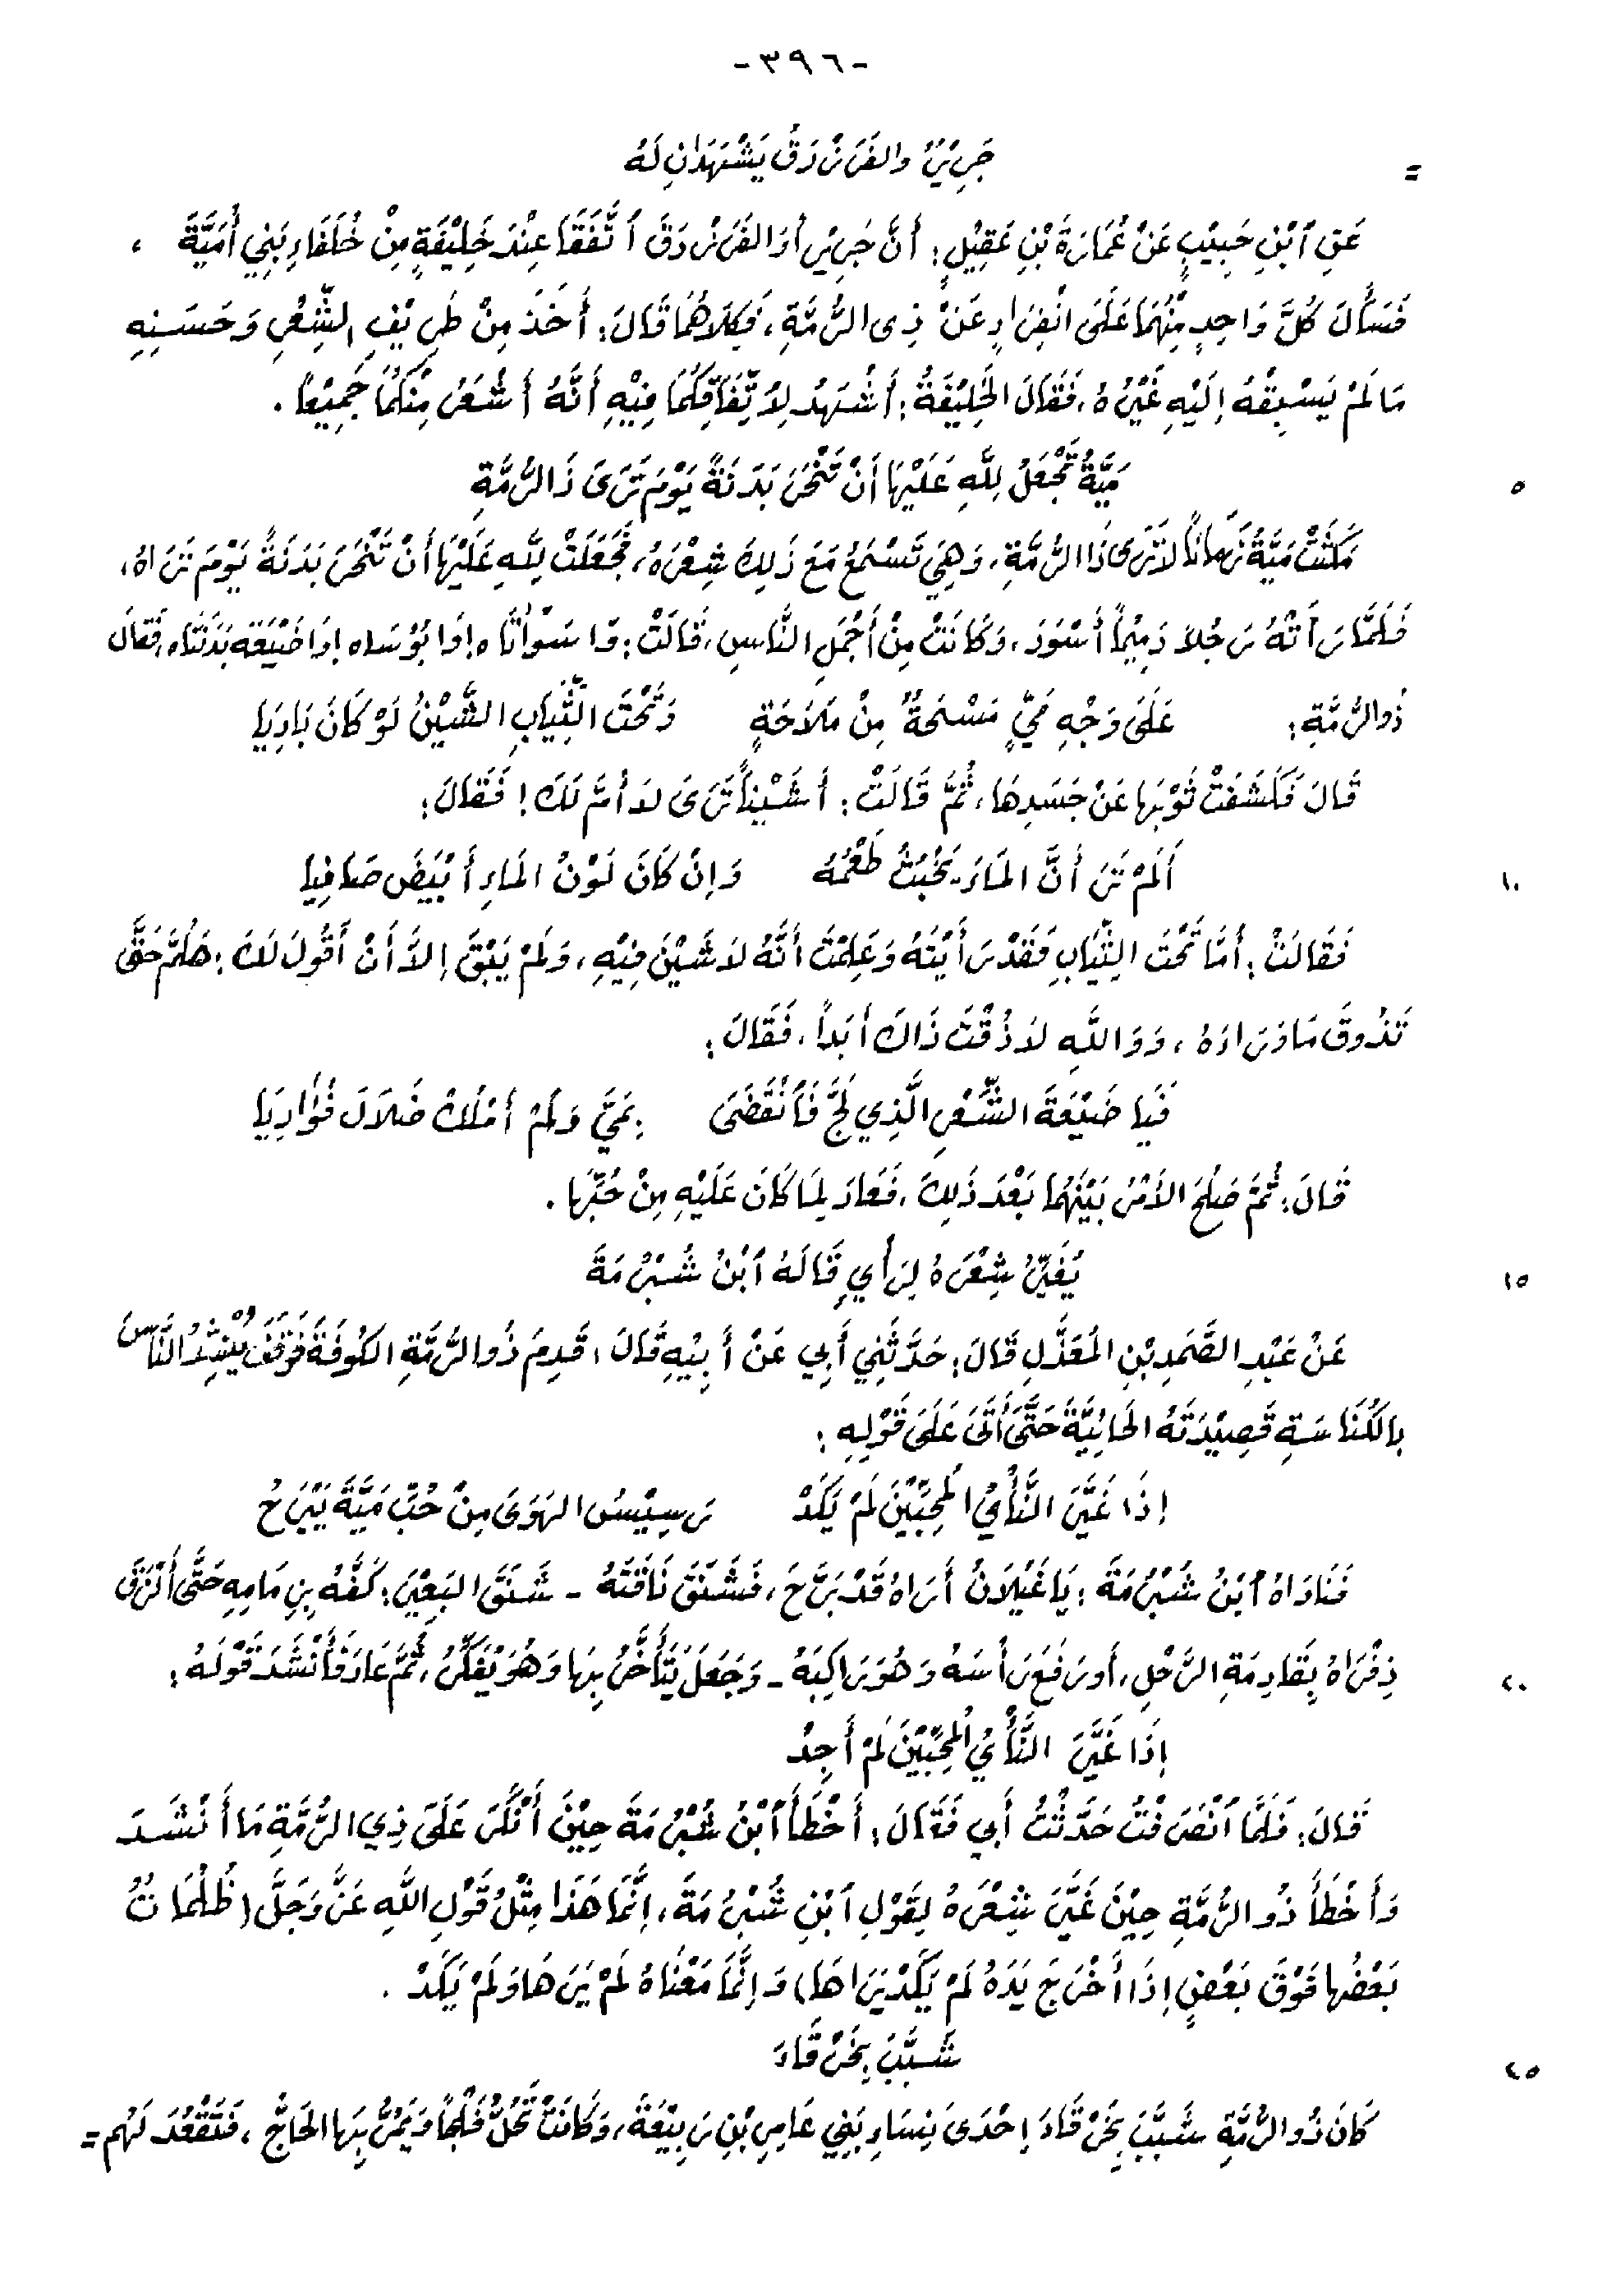 -٣٩٦-
= جَرِيْرٌ والفَرَزْدَقُ يَشْهَدَانِ لَهُ
عَنِ ٱبْنِ حَبِيْبٍ عَنْ عُمَارَةَ بْنِ عَقِيْلٍ: أَنَّ جَرِيْراً وَالفَرَزْدَقَ ٱتَّفَقَا عِنْدَ خَلِيْفَةٍ مِنْ خُلَفَاءِ بَنِي أُمَيَّةَ ،
فَسَأَلَ كُلَّ وَاحِدٍ مِنْهُمَا عَلَى انْفِرَادٍ عَنْ ذِى الرُّمَّةِ، فَكِلَاهُمَا قَالَ: أَخَذَ مِنْ طَرِيْفِ الشِّعْرِ وَحَسَنِهِ
مَا لَمْ يَسْبِقْهُ إِلَيْهِ غَيْرُهُ، فَقَالَ الخَلِيْفَةُ: أَشْهَدُ لِاتِّفَاقِكُمَا فِيْهِ أَنَّهُ أَشْعَرُ مِنْكُمَا جَمِيْعاً .
مَيَّةُ تَجْعَلُ لِلَّهِ عَلَيْهَا أَنْ تَنْحَرَ بَدَنَةً يَوْمَ تَرَى ذَا الرُّمَّةِ ٥
مَكَثَتْ مَيَّةُ زَمَاناً لَا تَرَى ذَا الرُّمَّةِ، وَهِيَ تَسْمَعُ مَعَ ذَلِكَ شِعْرَهُ، فَجَعَلَتْ لِلَّهِ عَلَيْهَا أَنْ تَنْحَرَ بَدَنَةً يَوْمَ تَرَاهُ،
فَلَمَّا رَأَتْهُ رَجُلاً دَمِيْماً أَسْوَدَ، وَكَانَتْ مِنْ أَجْمَلِ النَّاسِ، قَالَتْ: وَا سَوْأَتَاه! وَا بُؤْسَاه! وَا ضَيْعَةَ بَدَنَتَاه، فَقَالَ
ذُو الرُّمَّةِ: عَلَى وَجْهِ مَيٍّ مَسْحَةٌ مِنْ مَلَاحَةٍ وَتَحْتَ الثِّيَابِ الشَّيْنُ لَوْ كَانَ بَادِيَا
قَالَ فَكَشَفَتْ ثَوْبَهَا عَنْ جَسَدِهَا، ثُمَّ قَالَتْ: أَشَيْناً تَرَى لَا أُمَّ لَكَ! فَقَالَ:
أَلَمْ تَرَ أَنَّ المَاءَ يَخْبُثُ طَعْمُهُ وَإِنْ كَانَ لَوْنُ المَاءِ أَبْيَضَ صَافِيَا ١٠
فَقَالَتْ: أَمَّا تَحْتَ الثِّيَابِ فَقَدْ رَأَيْتَهُ وَعَلِمْتَ أَنَّهُ لَا شَيْنَ فِيْهِ، وَلَمْ يَبْقَ إِلاَّ أَنْ أَقُولَ لَكَ: هَلُمَّ حَتَّى
تَذُوقَ مَا وَرَاءَهُ، وَوَاللَّهِ لَا ذُقْتَ ذَاكَ أَبَداً، فَقَالَ:
فَيَا ضَيْعَةَ الشِّعْرِ الَّذِي لَجَّ فَٱنْقَضَى بِمَيٍّ وَلَمْ أَمْلِكْ ضَلَالَ فُؤَادِيَا
قَالَ: ثُمَّ صَلُحَ الأَمْرُ بَيْنَهُمَا بَعْدَ ذَلِكَ، فَعَادَ لِمَا كَانَ عَلَيْهِ مِنْ حُبِّهَا .
يُغَيِّرُ شِعْرَهُ لِرَأْيٍ قَالَهُ ٱبْنُ شُبْرُمَةَ ١٥
عَنْ عَبْدِ الصَّمَدِ بْنِ المُعَذَّلِ قَالَ: حَدَّثَنِي أَبِي عَنْ أَبِيْهِ قَالَ: قَدِمَ ذُو الرُّمَّةِ الكُوفَةَ فَوَقَفَ يُنْشِدُ النَّاسَ
بِالكُنَاسَةِ قَصِيْدَتَهُ الحَائِيَّةَ حَتَّى أَتَى عَلَى قَوْلِهِ:
إِذَا غَيَّرَ النَّأْيُ المُحِبِّيْنَ لَمْ يَكَدْ رَسِيْسُ الهَوَى مِنْ حُبِّ مَيَّةَ يَبْرَحُ
فَنَادَاهُ ٱبْنُ شُبْرُمَةَ: يَا غَيْلَانُ أَرَاهُ قَدْ بَرَّحَ، فَشَنَقَ نَاقَتَهُ - شَنَقَ البَعِيْرَ: كَفَّهُ بِزِمَامِهِ حَتَّى أَلْزَقَ
ذِفْرَاهُ بِقَادِمَةِ الرَّحْلِ، أَو رَفَعَ رَأْسَهُ وَهُوَ رَاكِبَهُ - وَجَعَلَ يَتَأَخَّرُ بِهَا وَهُوَ يُفَكِّرُ، ثُمَّ عَادَ فَأَنْشَدَ قَوْلَهُ: ٢٠
إِذَا غَيَّرَ النَّأْيُ المُحِبِّيْنَ لَمْ أَجِدْ
قَالَ: فَلَمَّا ٱنْصَرَفْتُ حَدَّثْتُ أَبِي فَقَالَ: أَخْطَأَ ٱبْنُ شُبْرُمَةَ حِيْنَ أَنْكَرَ عَلَى ذِي الرُّمَّةِ مَا أَنْشَدَ
وَأَخْطَأَ ذُو الرُّمَّةِ حِيْنَ غَيَّرَ شِعْرَهُ لِقَوْلِ ٱبْنِ شُبْرُمَةَ، إِنَّمَا هَذَا مِثْلُ قَوْلِ اللَّهِ عَزَّ وَجَلَّ (ظُلُمَاتٌ
بَعْضُهَا فَوْقَ بَعْضٍ إِذَا أَخْرَجَ يَدَهُ لَمْ يَكَدْ يَرَاهَا) وَإِنَّمَا مَعْنَاهُ لَمْ يَرَهَا وَلَمْ يَكَدْ .
شَبَّبَ بِخَرْقَاءَ ٢٥
كَانَ ذُو الرُّمَّةِ شَبَّبَ بِخَرْقَاءَ إِحْدَى نِسَاءِ بَنِي عَامِرِ بْنِ رَبِيْعَةَ، وَكَانَتْ تَحُلُّ فَلْجاً وَيَمُرُّ بِهَا الحَاجُّ، فَتَقْعُدَ لَهُم =